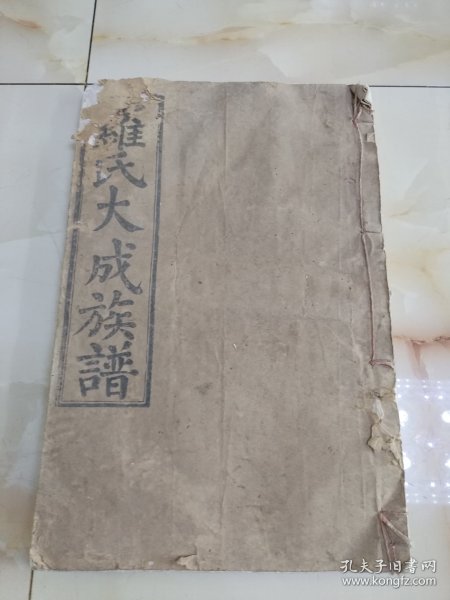 羅氏大成族譜
孔夫子旧书网
www.kongfz.com